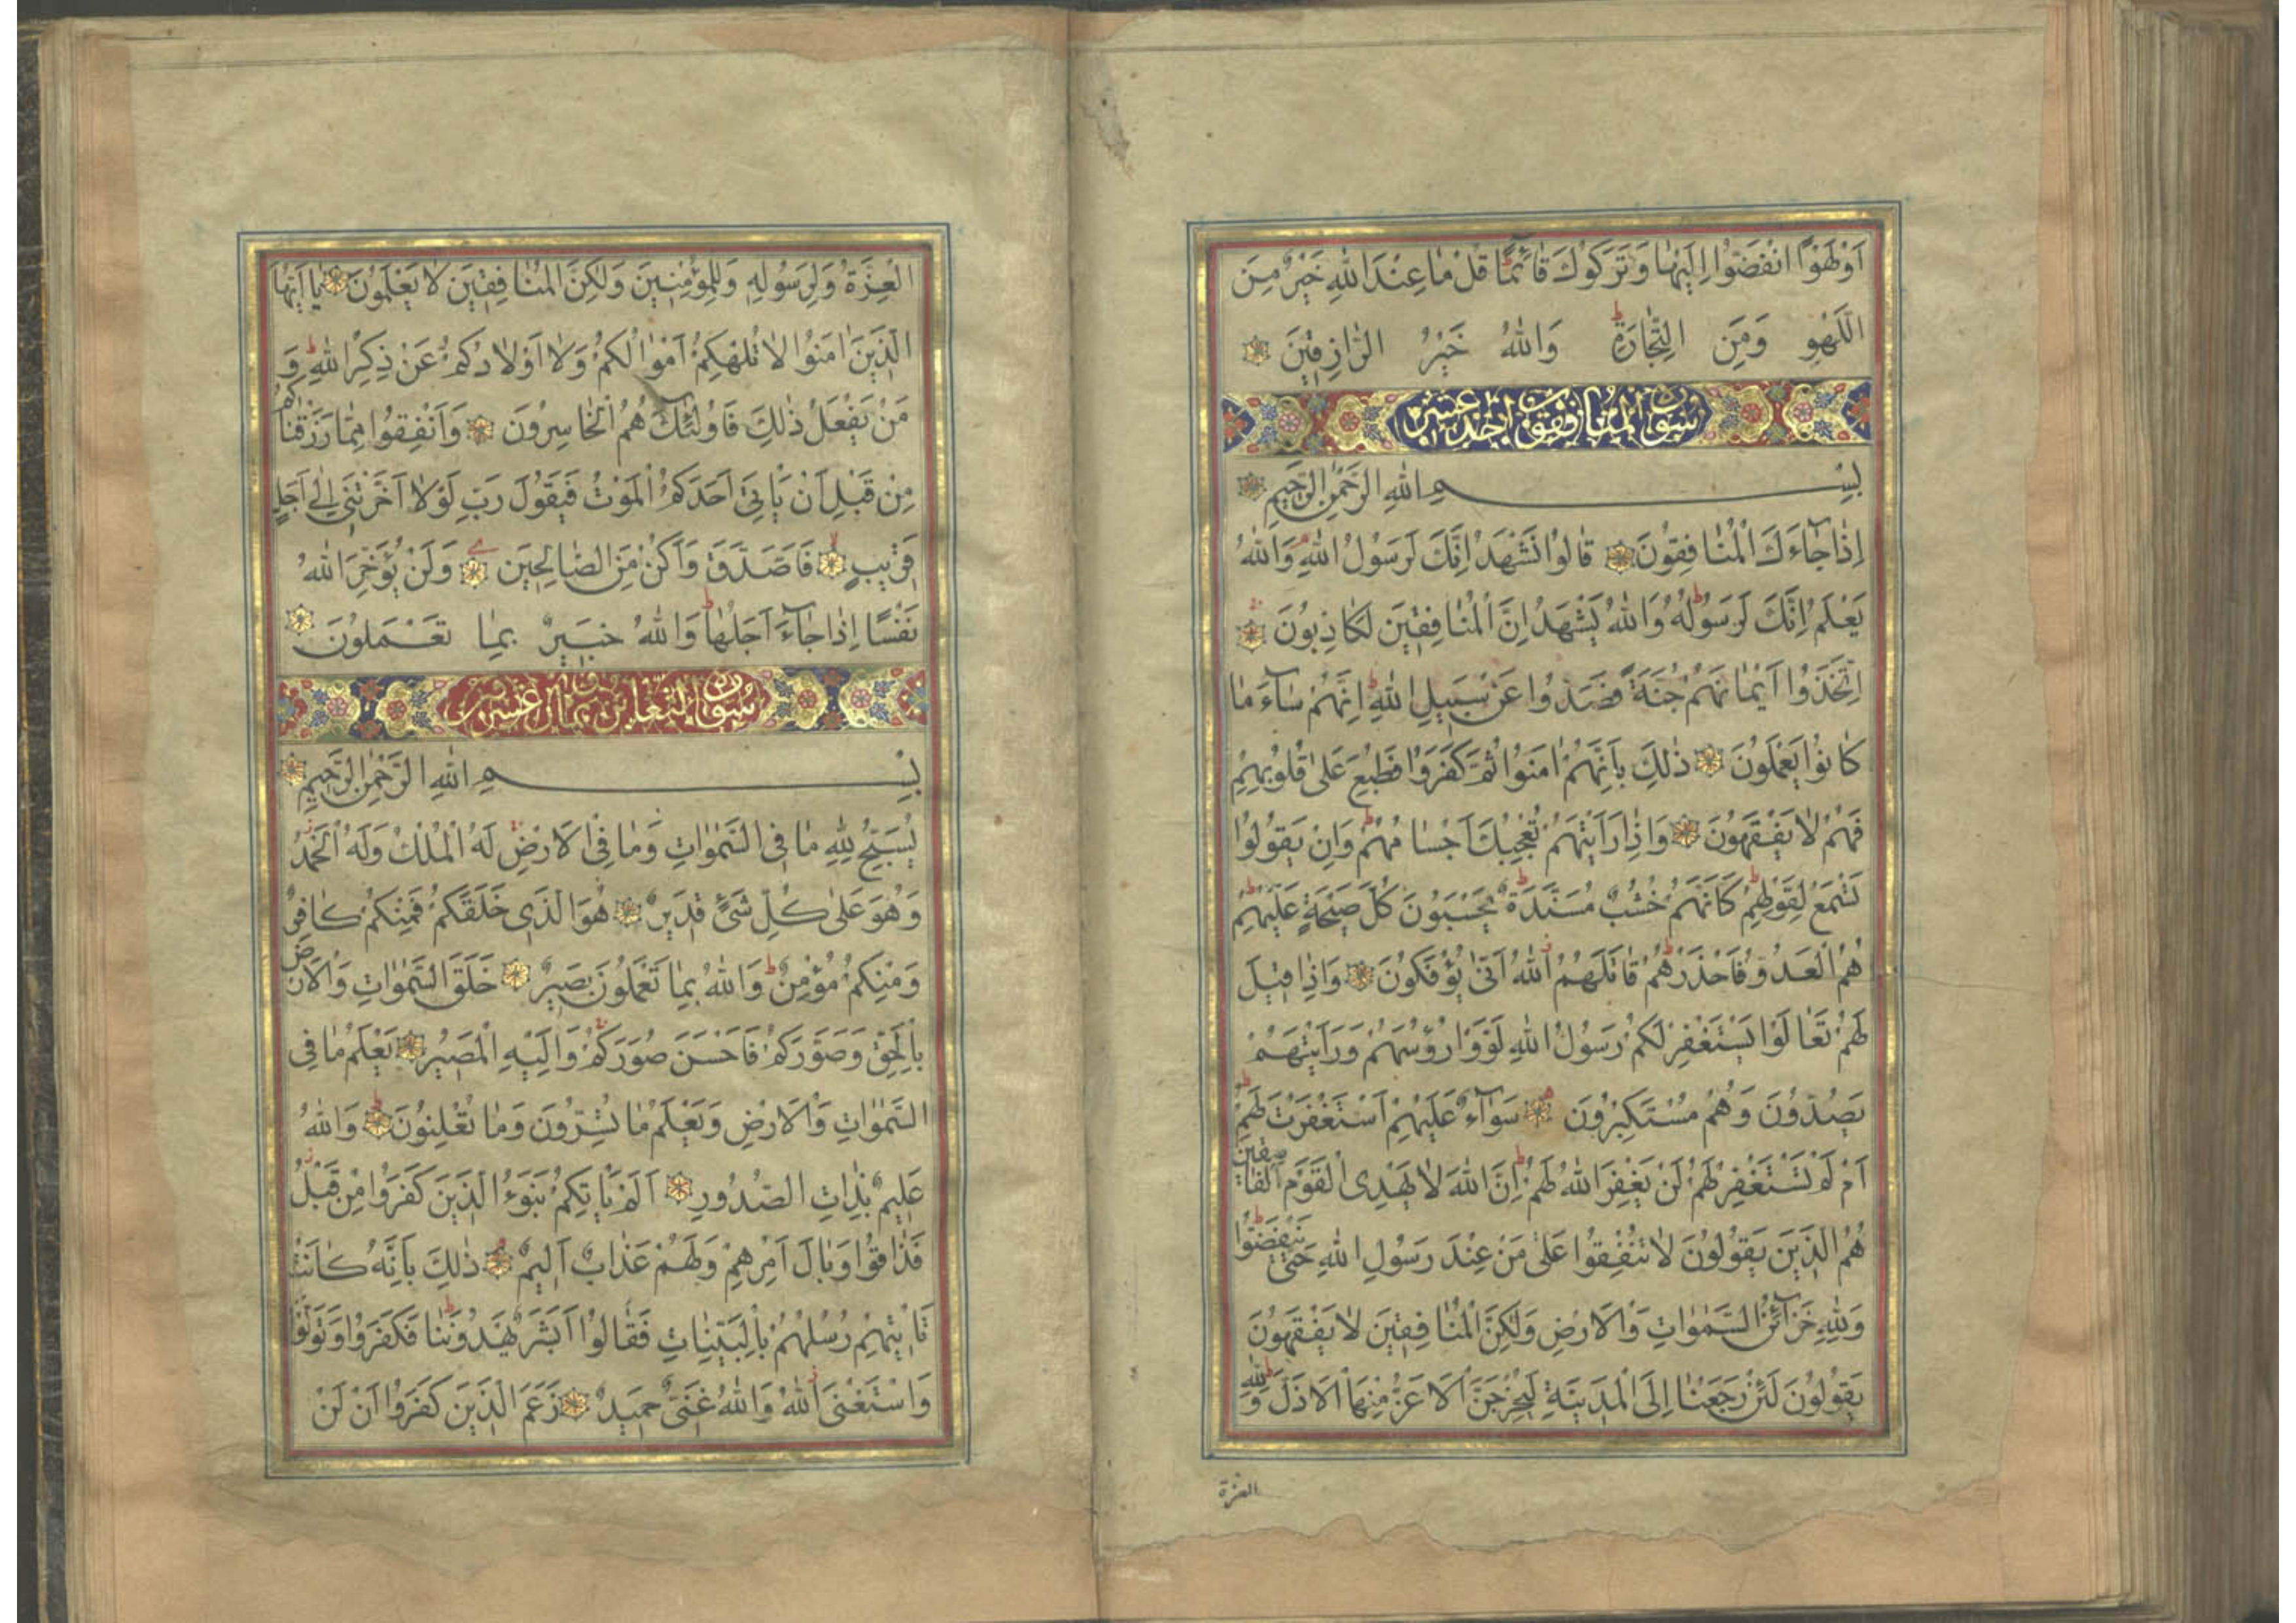 اَوْ لَهْوًا انْفَضُّوا اِلَيْهَا وَتَرَكُوكَ قَائِمًا قُلْ مَا عِنْدَ اللّٰهِ خَيْرٌ مِنَ
اللَّهْوِ وَمِنَ التِّجَارَةِ وَاللّٰهُ خَيْرُ الرَّازِقِينَ
سورة المنافقون احد عشر اية
بِسْمِ اللّٰهِ الرَّحْمٰنِ الرَّحِيمِ
اِذَا جَاءَكَ الْمُنَافِقُونَ قَالُوا نَشْهَدُ اِنَّكَ لَرَسُولُ اللّٰهِ وَاللّٰهُ
يَعْلَمُ اِنَّكَ لَرَسُولُهُ وَاللّٰهُ يَشْهَدُ اِنَّ الْمُنَافِقِينَ لَكَاذِبُونَ
اِتَّخَذُوا اَيْمَانَهُمْ جُنَّةً فَصَدُّوا عَنْ سَبِيلِ اللّٰهِ اِنَّهُمْ سَاءَ مَا
كَانُوا يَعْمَلُونَ ذٰلِكَ بِاَنَّهُمْ اٰمَنُوا ثُمَّ كَفَرُوا فَطُبِعَ عَلٰى قُلُوبِهِمْ
فَهُمْ لَا يَفْقَهُونَ وَاِذَا رَاَيْتَهُمْ تُعْجِبُكَ اَجْسَامُهُمْ وَاِنْ يَقُولُوا
تَسْمَعْ لِقَوْلِهِمْ كَاَنَّهُمْ خُشُبٌ مُسَنَّدَةٌ يَحْسَبُونَ كُلَّ صَيْحَةٍ عَلَيْهِمْ
هُمُ الْعَدُوُّ فَاحْذَرْهُمْ قَاتَلَهُمُ اللّٰهُ اَنّٰى يُؤْفَكُونَ وَاِذَا قِيلَ
لَهُمْ تَعَالَوْا يَسْتَغْفِرْ لَكُمْ رَسُولُ اللّٰهِ لَوَّوْا رُؤُسَهُمْ وَرَاَيْتَهُمْ
يَصُدُّونَ وَهُمْ مُسْتَكْبِرُونَ سَوَاءٌ عَلَيْهِمْ اَسْتَغْفَرْتَ لَهُمْ
اَمْ لَمْ تَسْتَغْفِرْ لَهُمْ لَنْ يَغْفِرَ اللّٰهُ لَهُمْ اِنَّ اللّٰهَ لَا يَهْدِى الْقَوْمَ الْفَاسِقِينَ
هُمُ الَّذِينَ يَقُولُونَ لَا تُنْفِقُوا عَلٰى مَنْ عِنْدَ رَسُولِ اللّٰهِ حَتّٰى يَنْفَضُّوا
وَلِلّٰهِ خَزَائِنُ السَّمٰوَاتِ وَالْاَرْضِ وَلٰكِنَّ الْمُنَافِقِينَ لَا يَفْقَهُونَ
يَقُولُونَ لَئِنْ رَجَعْنَا اِلَى الْمَدِينَةِ لَيُخْرِجَنَّ الْاَعَزُّ مِنْهَا الْاَذَلَّ وَلِلّٰهِ
العزة
الْعِزَّةُ وَلِرَسُولِهِ وَلِلْمُؤْمِنِينَ وَلٰكِنَّ الْمُنَافِقِينَ لَا يَعْلَمُونَ يَا اَيُّهَا
الَّذِينَ اٰمَنُوا لَا تُلْهِكُمْ اَمْوَالُكُمْ وَلَا اَوْلَادُكُمْ عَنْ ذِكْرِ اللّٰهِ وَ
مَنْ يَفْعَلْ ذٰلِكَ فَاُولٰئِكَ هُمُ الْخَاسِرُونَ وَاَنْفِقُوا مِمَّا رَزَقْنَاكُمْ
مِنْ قَبْلِ اَنْ يَاْتِىَ اَحَدَكُمُ الْمَوْتُ فَيَقُولَ رَبِّ لَوْلَا اَخَّرْتَنِى اِلٰى اَجَلٍ
قَرِيبٍ فَاَصَّدَّقَ وَاَكُنْ مِنَ الصَّالِحِينَ وَلَنْ يُؤَخِّرَ اللّٰهُ
نَفْسًا اِذَا جَاءَ اَجَلُهَا وَاللّٰهُ خَبِيرٌ بِمَا تَعْمَلُونَ
سورة التغابن ثمان عشر اية
بِسْمِ اللّٰهِ الرَّحْمٰنِ الرَّحِيمِ
يُسَبِّحُ لِلّٰهِ مَا فِى السَّمٰوَاتِ وَمَا فِى الْاَرْضِ لَهُ الْمُلْكُ وَلَهُ الْحَمْدُ
وَهُوَ عَلٰى كُلِّ شَىْءٍ قَدِيرٌ هُوَ الَّذِى خَلَقَكُمْ فَمِنْكُمْ كَافِرٌ
وَمِنْكُمْ مُؤْمِنٌ وَاللّٰهُ بِمَا تَعْمَلُونَ بَصِيرٌ خَلَقَ السَّمٰوَاتِ وَالْاَرْضَ
بِالْحَقِّ وَصَوَّرَكُمْ فَاَحْسَنَ صُوَرَكُمْ وَاِلَيْهِ الْمَصِيرُ يَعْلَمُ مَا فِى
السَّمٰوَاتِ وَالْاَرْضِ وَيَعْلَمُ مَا تُسِرُّونَ وَمَا تُعْلِنُونَ وَاللّٰهُ
عَلِيمٌ بِذَاتِ الصُّدُورِ اَلَمْ يَاْتِكُمْ نَبَؤُا الَّذِينَ كَفَرُوا مِنْ قَبْلُ
فَذَاقُوا وَبَالَ اَمْرِهِمْ وَلَهُمْ عَذَابٌ اَلِيمٌ ذٰلِكَ بِاَنَّهُ كَانَتْ
تَاْتِيهِمْ رُسُلُهُمْ بِالْبَيِّنَاتِ فَقَالُوا اَبَشَرٌ يَهْدُونَنَا فَكَفَرُوا وَتَوَلَّوْا
وَاسْتَغْنَى اللّٰهُ وَاللّٰهُ غَنِىٌّ حَمِيدٌ زَعَمَ الَّذِينَ كَفَرُوا اَنْ لَنْ